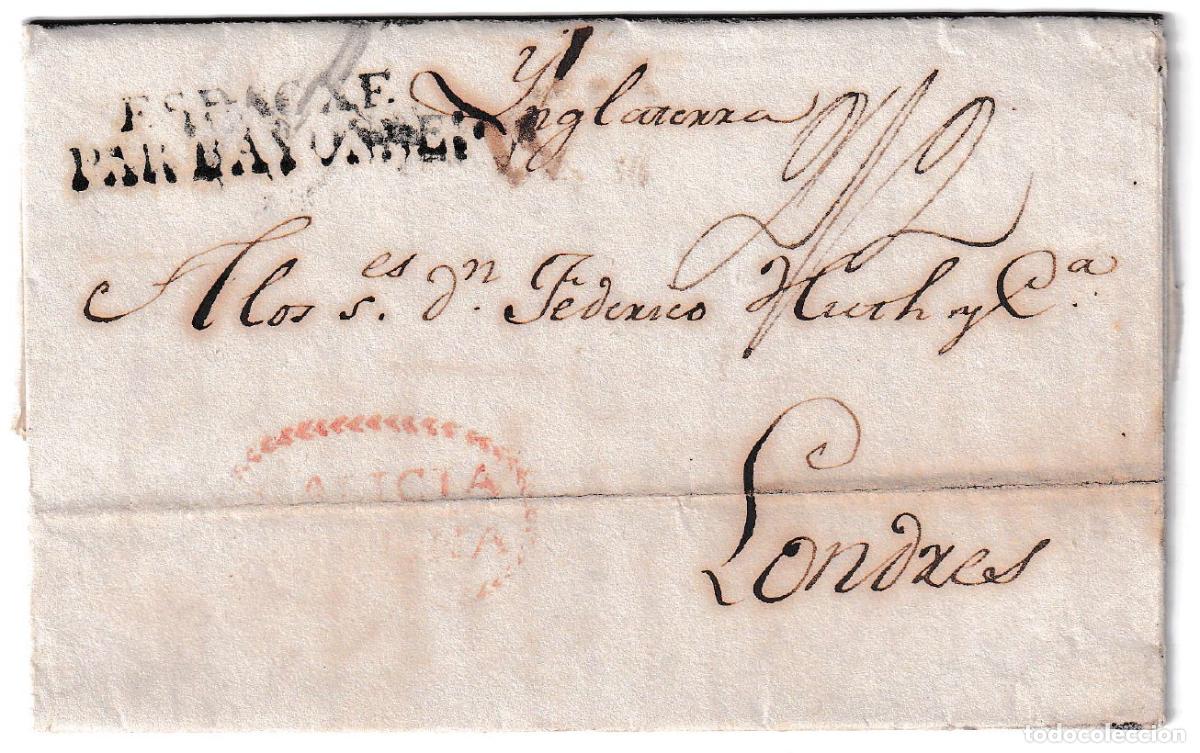 Ynglaterra
ESPAGNE
PAR BAYONNE
2/2
A los s.es dn Federico Huth y C.a
ALICIA
Londres
todocoleccion